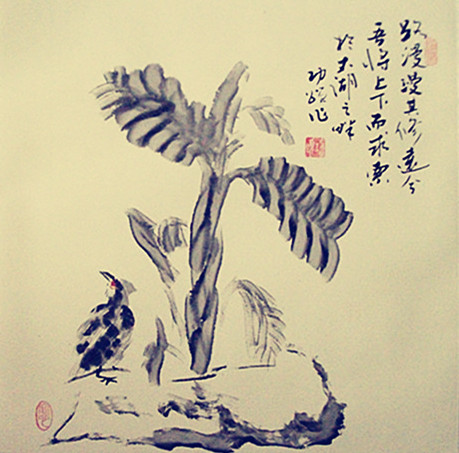 路漫漫其修遠兮
吾將上下而求索
於太湖之畔
作